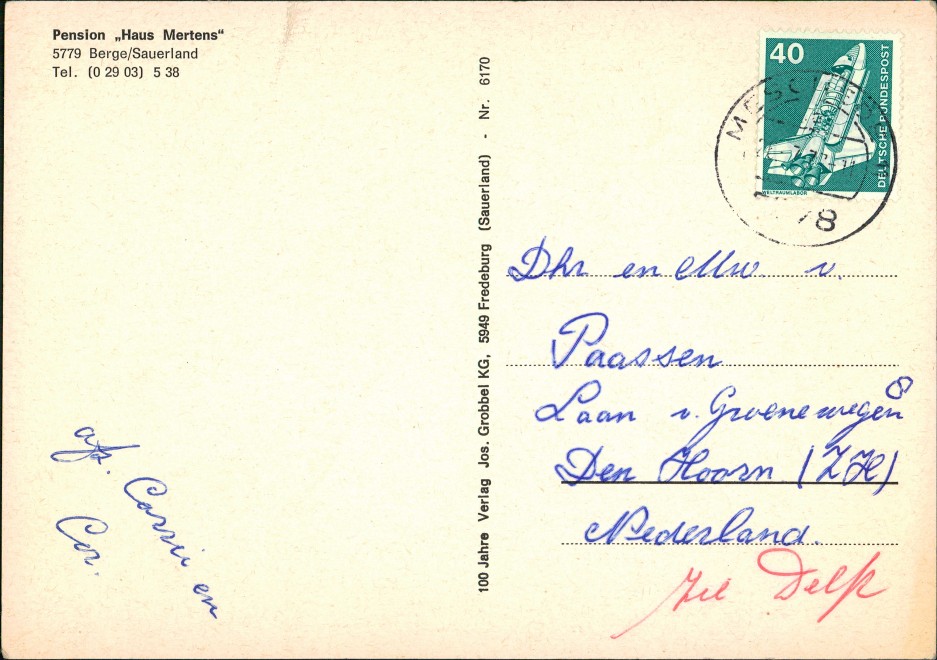 Pension „Haus Mertens“
5779 Berge/Sauerland
Tel. (0 29 03) 5 38
100 Jahre Verlag Jos. Grobbel KG, 5949 Fredeburg (Sauerland) - Nr. 6170
40
DEUTSCHE BUNDESPOST
WELTRAUMLABOR
78
Dhr en Mw v.
Paassen
Laan v. Groenewegen 8
Den Hoorn (ZH)
Nederland.
Delft
afz. Corrie en
Cor.